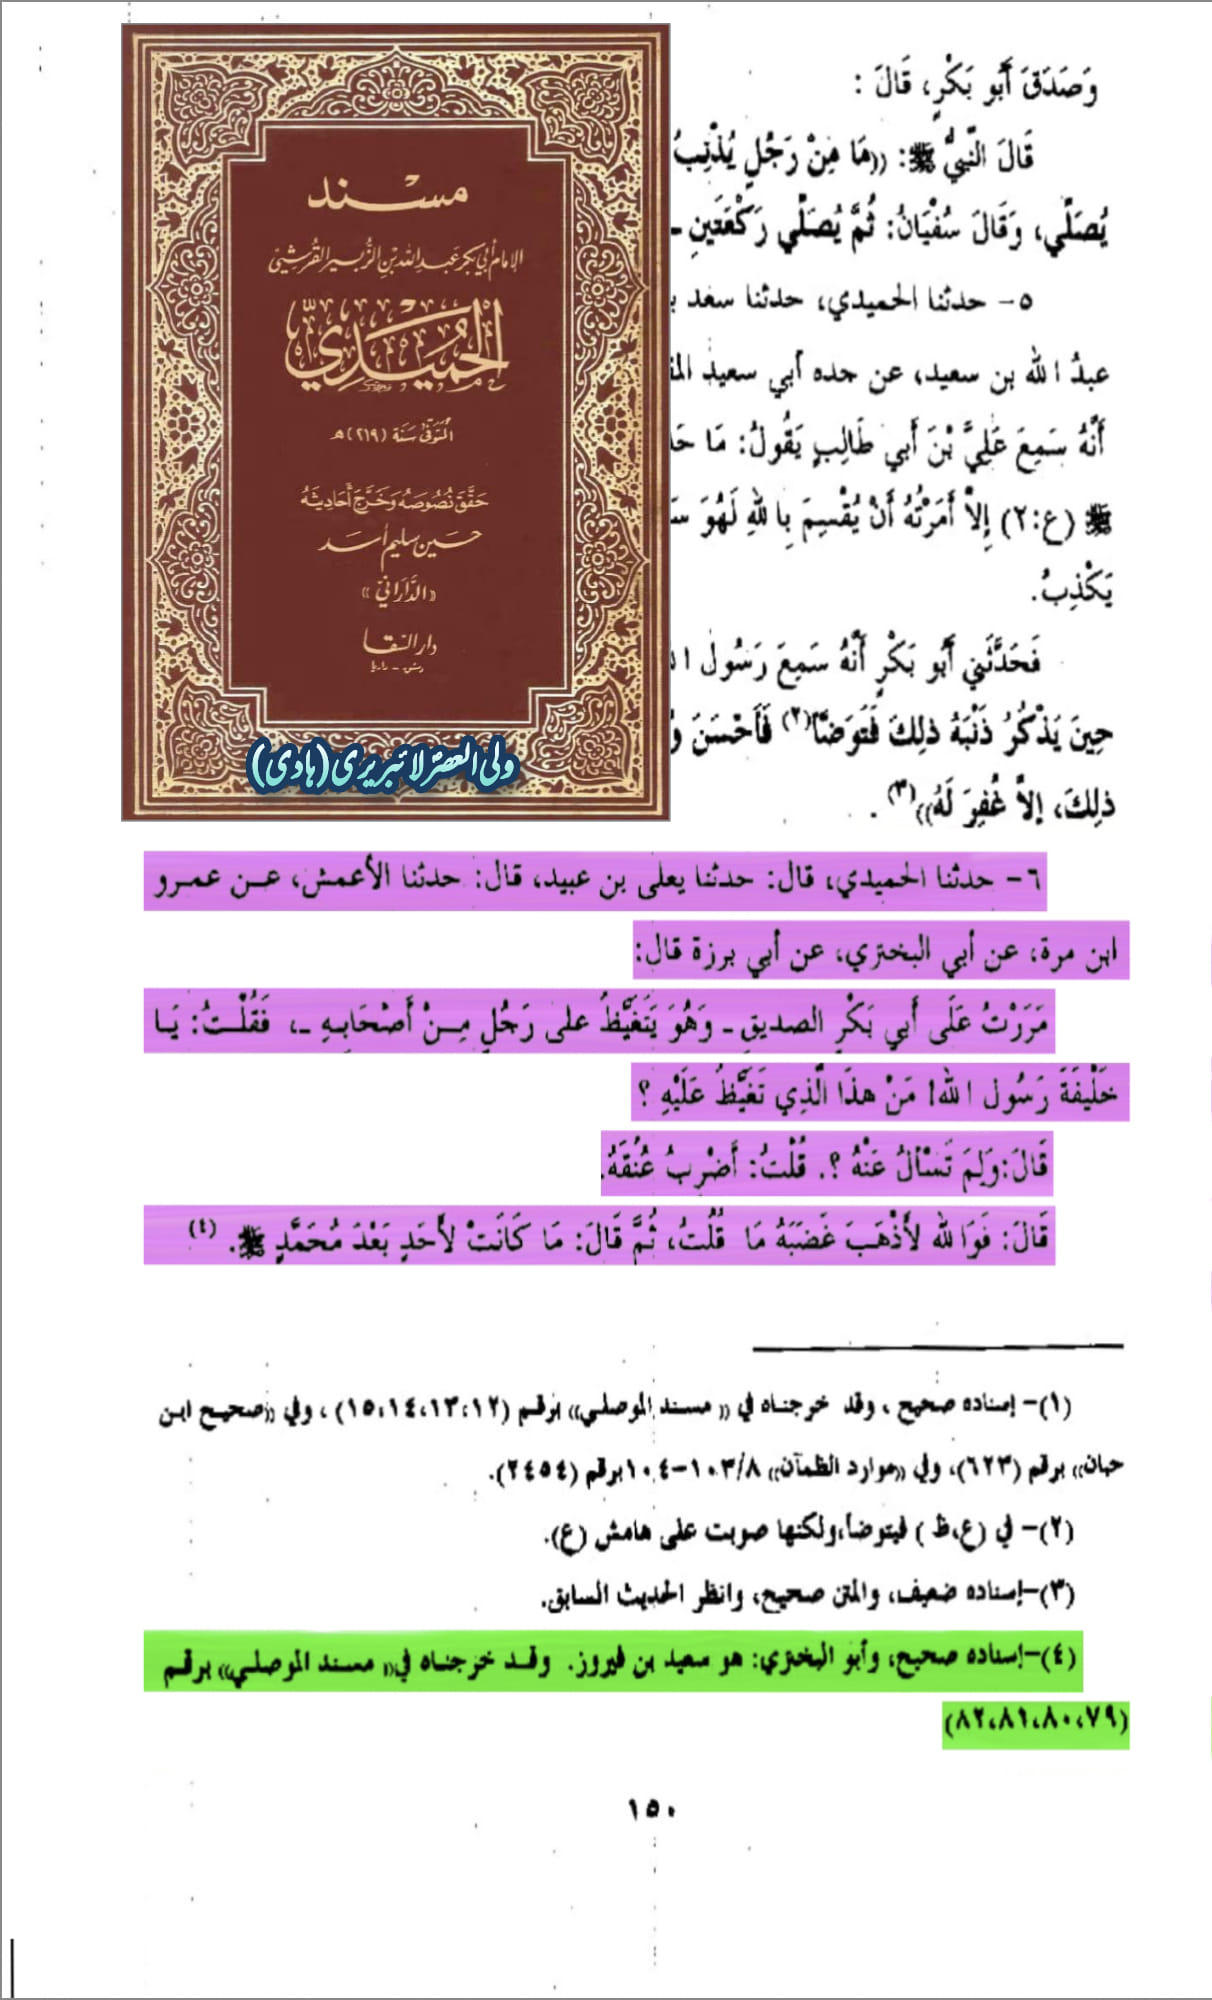 مسند
الإمام أبي بكر عبد الله بن الزبير القرشي
الحُمَيْدِيّ
المتوفى سنة (٢١٩) هـ
حقق نصوصه وخرج أحاديثه
حسين سليم أسد
«الدَّاراني»
دار السقا
دمشق - داريا
ولی العصر لائبریری (ہادی)
وَصَدَقَ أَبو بَكْرٍ، قَالَ :
قَالَ النَّبِيُّ ﷺ: ((مَا مِنْ رَجُلٍ يُذْنِبُ
يُصَلِّي، وَقَالَ سُفْيَانُ: ثُمَّ يُصَلِّي رَكْعَتَينِ ـ
٥- حدثنا الحميدي، حدثنا سعد
عبدُ الله بن سعيد، عن جده أبي سعيد
أَنَّهُ سَمِعَ عَلِيَّ بْنَ أَبي طَالِبٍ يَقُولُ: مَا
ﷺ (ع:٢) إِلاَّ أَمَرْتُهُ أَنْ يُقْسِمَ بِاللهِ لَهُوَ
يَكْذِبُ.
فَحَدَّثَنِي أَبُو بَكْرٍ أَنَّهُ سَمِعَ رَسُولَ
حِينَ يَذْكُرُ ذَنْبَهُ ذلِكَ فَتَوَضَّأَ(٢) فَأَحْسَنَ
ذلِكَ، إلاَّ غُفِرَ لَهُ))(٣) .
٦- حدثنا الحميدي، قال: حدثنا يعلى بن عبيد، قال: حدثنا الأعمش، عـن عمـرو
ابن مرة، عن أبي البختري، عن أبي برزة قال:
مَرَرْتُ عَلَى أَبي بَكْرٍ الصديقِ ـ وَهُوَ يَتَغَيَّظُ على رَجُلٍ مِـنْ أَصْحَابِـهِ ـ، فَقُلْـتُ: يَـا
خَلِيفَةَ رَسُول الله! مَنْ هذَا الَّذِي تَغَيَّظُ عَلَيْهِ ؟
قَالَ:وَلِمَ تَسْأَلُ عَنْهُ ؟. قُلْتُ: أَضْرِبُ عُنُقَهُ.
قَالَ: فَوَالله لأَذْهَبَ غَضَبَهُ مَا قُلْتُ، ثُمَّ قَالَ: مَا كَانَتْ لأَحَدٍ بَعْدَ مُحَمَّدٍ ﷺ. (٤)
(١)- إسناده صحيح ، وقد خرجناه في (( مسند الموصلي)) برقم (١٢،١٣،١٤،١٥) ، وفي ((صحيح ابن
حبان)) برقم (٦٢٣)، وفي ((موارد الظمآن)) ٨/١٠٣-١٠٤برقم (٢٤٥٤).
(٢)- في (ع،ظ ) فيتوضأ،ولكنها صوبت على هامش (ع).
(٣)-إسناده ضعيف، والمتن صحيح، وانظر الحديث السابق.
(٤)-إسناده صحيح، وأبو البختري: هو سعيد بن فيروز. وقـد خرجنـاه في(( مسند الموصلي)) برقـم
(٧٩،٨٠،٨١،٨٢)
١٥٠